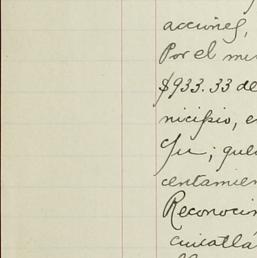 acciones,
Por el mu
$933.33 de
nicipio, e
que
centamien
Reconoci
cuicatlá